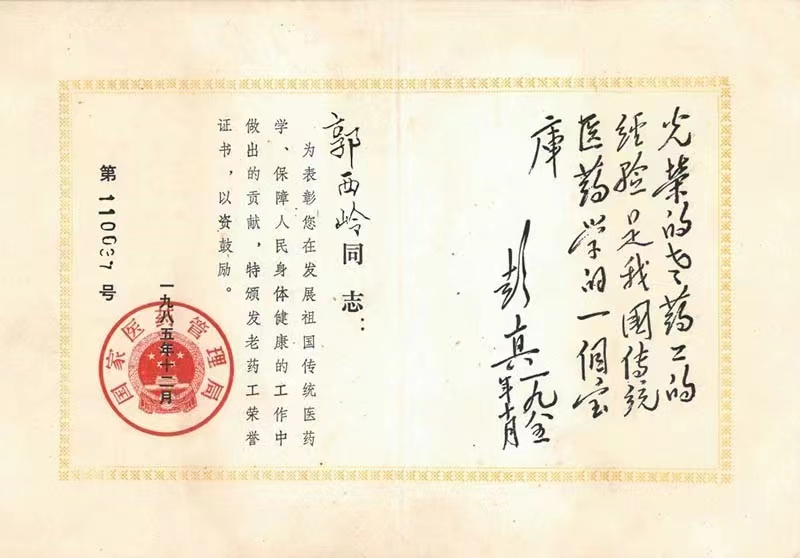 光荣的老药工的
经验是我國传统
医药学的一個宝
庫
彭真一九八五
年十月
郭西岭同志：
为表彰您在发展祖国传统医药
学、保障人民身体健康的工作中
做出的贡献，特颁发老药工荣誉
证书，以资鼓励。
国家医药管理局
一九八五年十二月
第110637号